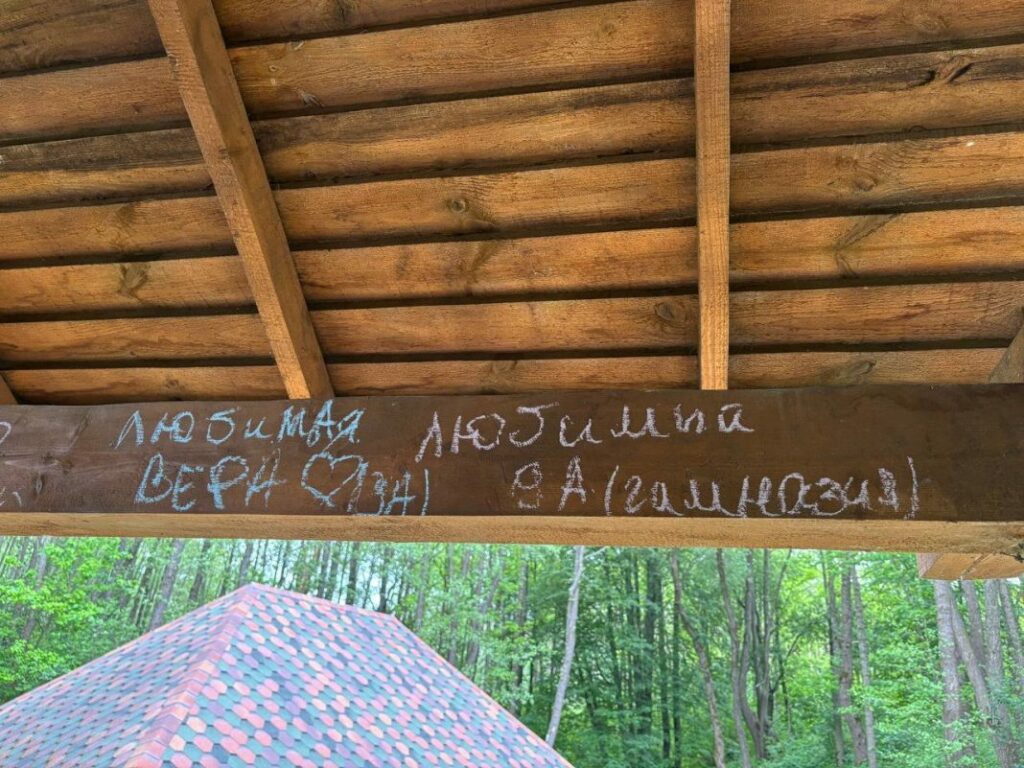 ЛЮБИМАЯ
ВЕРА ♡ (ЗА)
ЛЮбимый
9А (гимназия)